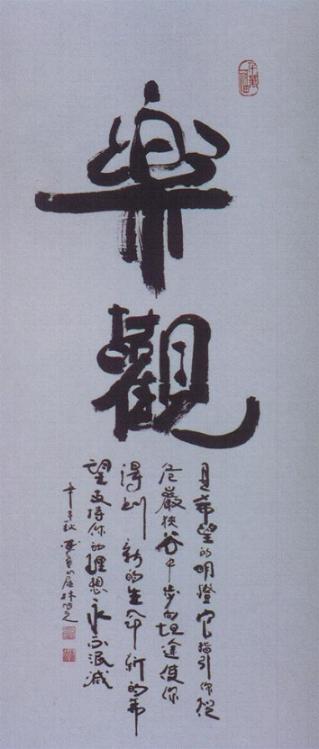 樂觀
是希望的明燈它指引你從
危巖狹谷中步向坦途使你
得到新的生命新的希
望支持你的理想永不泯滅